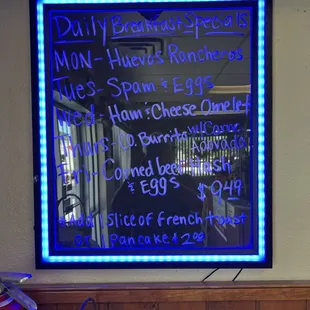 Daily Breakfast Specials
MON - Huevos Rancheros
Tues - Spam & Eggs
Wed - Ham & Cheese Omelet
Thurs - J.D. Burrito w/Carne
Adovada
Fri - Corned beef Hash
& Eggs $9.49
Add 1 Slice of french toast
or Pancake $2.00